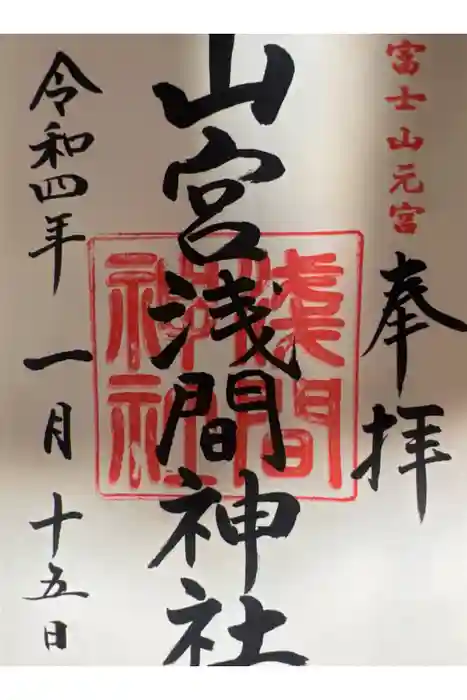 富士山元宮
奉拝
山宮浅間神社
令和四年 一月 十五日